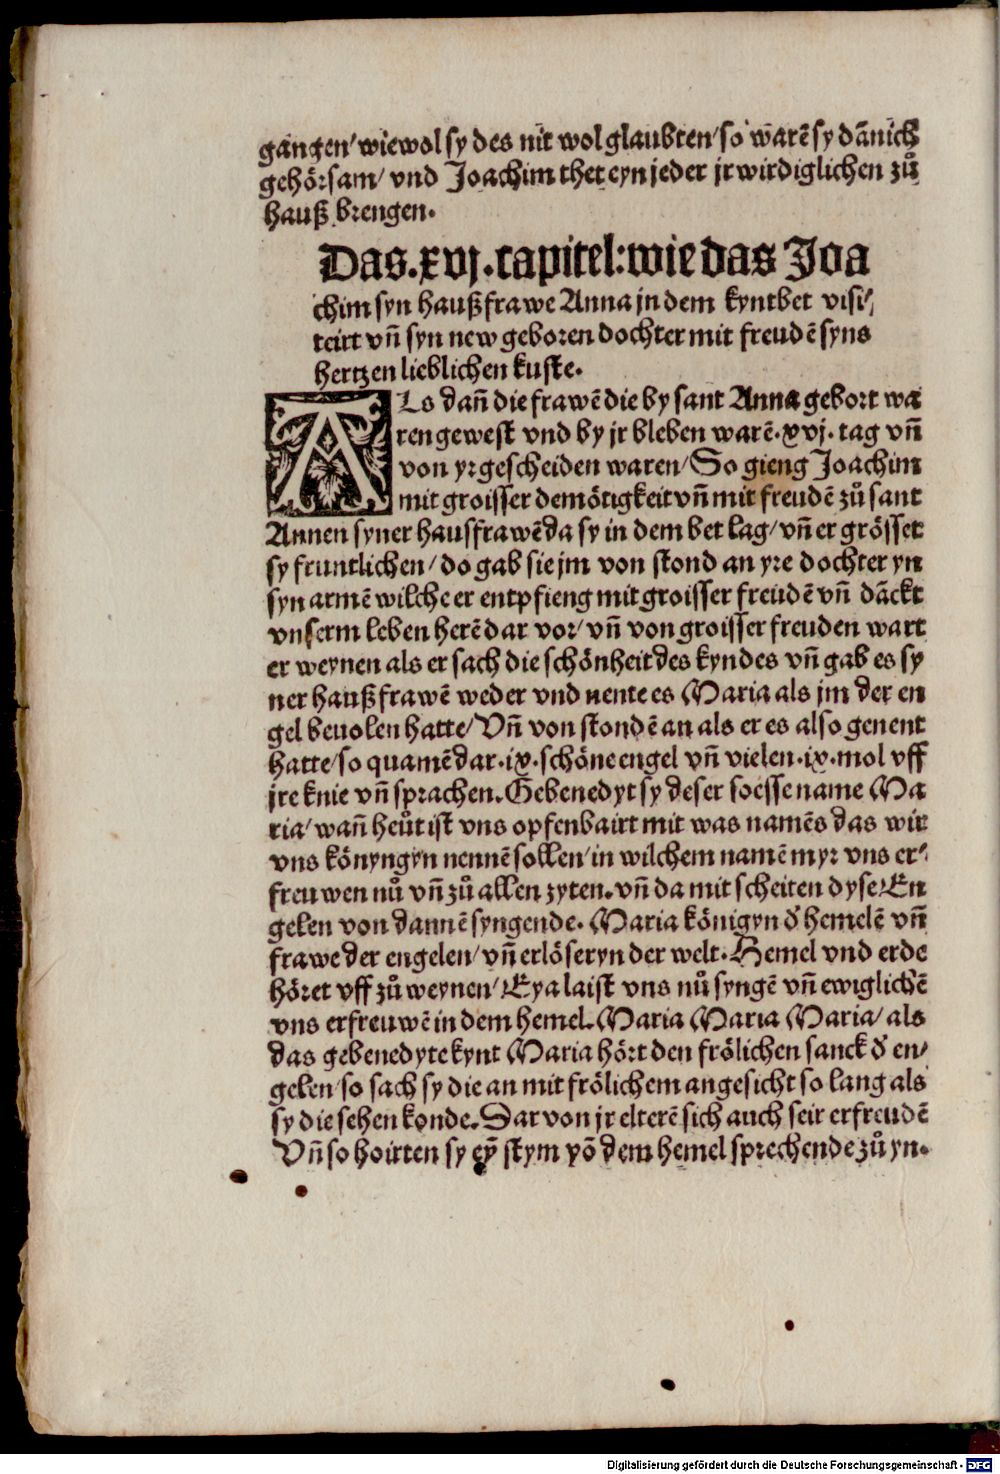 gangen/ wiewol sy des nit wol glaubten/ so warē sy dānich
gehörsam/ vnd Joachim thet eyn jeder jr wirdiglichen zů
hauß brengen.
Das.xvj.capitel:wie das Joa
chim syn haußfrawe Anna jn dem kyntbet visi/
teirt vn̄ syn new geboren dochter mit freudē syns
hertzen lieblichen kuste.
ALs dan̄ die frawē die by sant Anna gebort wa
ren gewest vnd by jr bleben warē.xvj. tag vn̄
von yr gescheiden waren/ So gieng Joachim
mit groisser demötigkeit vn̄ mit freudē zů sant
Annen syner hausfrawē da sy in dem bet lag/ vn̄ er grösset
sy fruntlichen/ do gab sie jm von stond an yre dochter yn
syn armē wilche er entpfieng mit groisser freudē vn̄ dāckt
vnserm leben herē dar vor/ vn̄ von groisser freuden wart
er weynen als er sach die schönheit des kyndes vn̄ gab es sy
ner haußfrawē weder vnd nente es Maria als jm der en
gel beuolen hatte/ Vn̄ von stondē an als er es also genent
hatte/ so quamē dar.ix.schöne engel vn̄ vielen.ix.mol vff
jre knie vn̄ sprachen. Gebenedyt sy deser soesse name Ma
ria/ wan̄ heůt ist vns opfenbairt mit was namēs das wir
vns könyngyn nennē sollen/ in wilchem namē myr vns er/
freuwen nů vn̄ zů allen zyten. vn̄ da mit scheiten dyse En
gelen von dannē syngende. Maria königyn d̕ hemelē vn̄
frawe der engelen/ vn̄ erlöseryn der welt. Hemel vnd erde
höret vff zů weynen/ Eya laist vns nů syngē vn̄ ewiglichē
vns erfreuwē in dem hemel. Maria Maria Maria/ als
das gebenedyte kynt Maria hört den frölichen sanck d̕ en/
gelen/ so sach sy die an mit frölichem angesicht so lang als
sy die sehen konde. Dar von jr elterē sich auch seir erfreudē
Vn̄ so hoirten sy eȳ stym vō dem hemel sprechende zů yn.
Digitalisierung gefördert durch die Deutsche Forschungsgemeinschaft - DFG